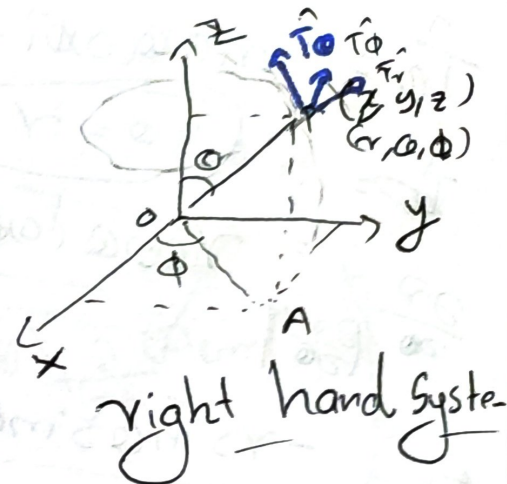 Z
T̂θ T̂φ
T̂r
(x, y, z)
(r, θ, φ)
θ
O
y
φ
A
X
right hand Syste-